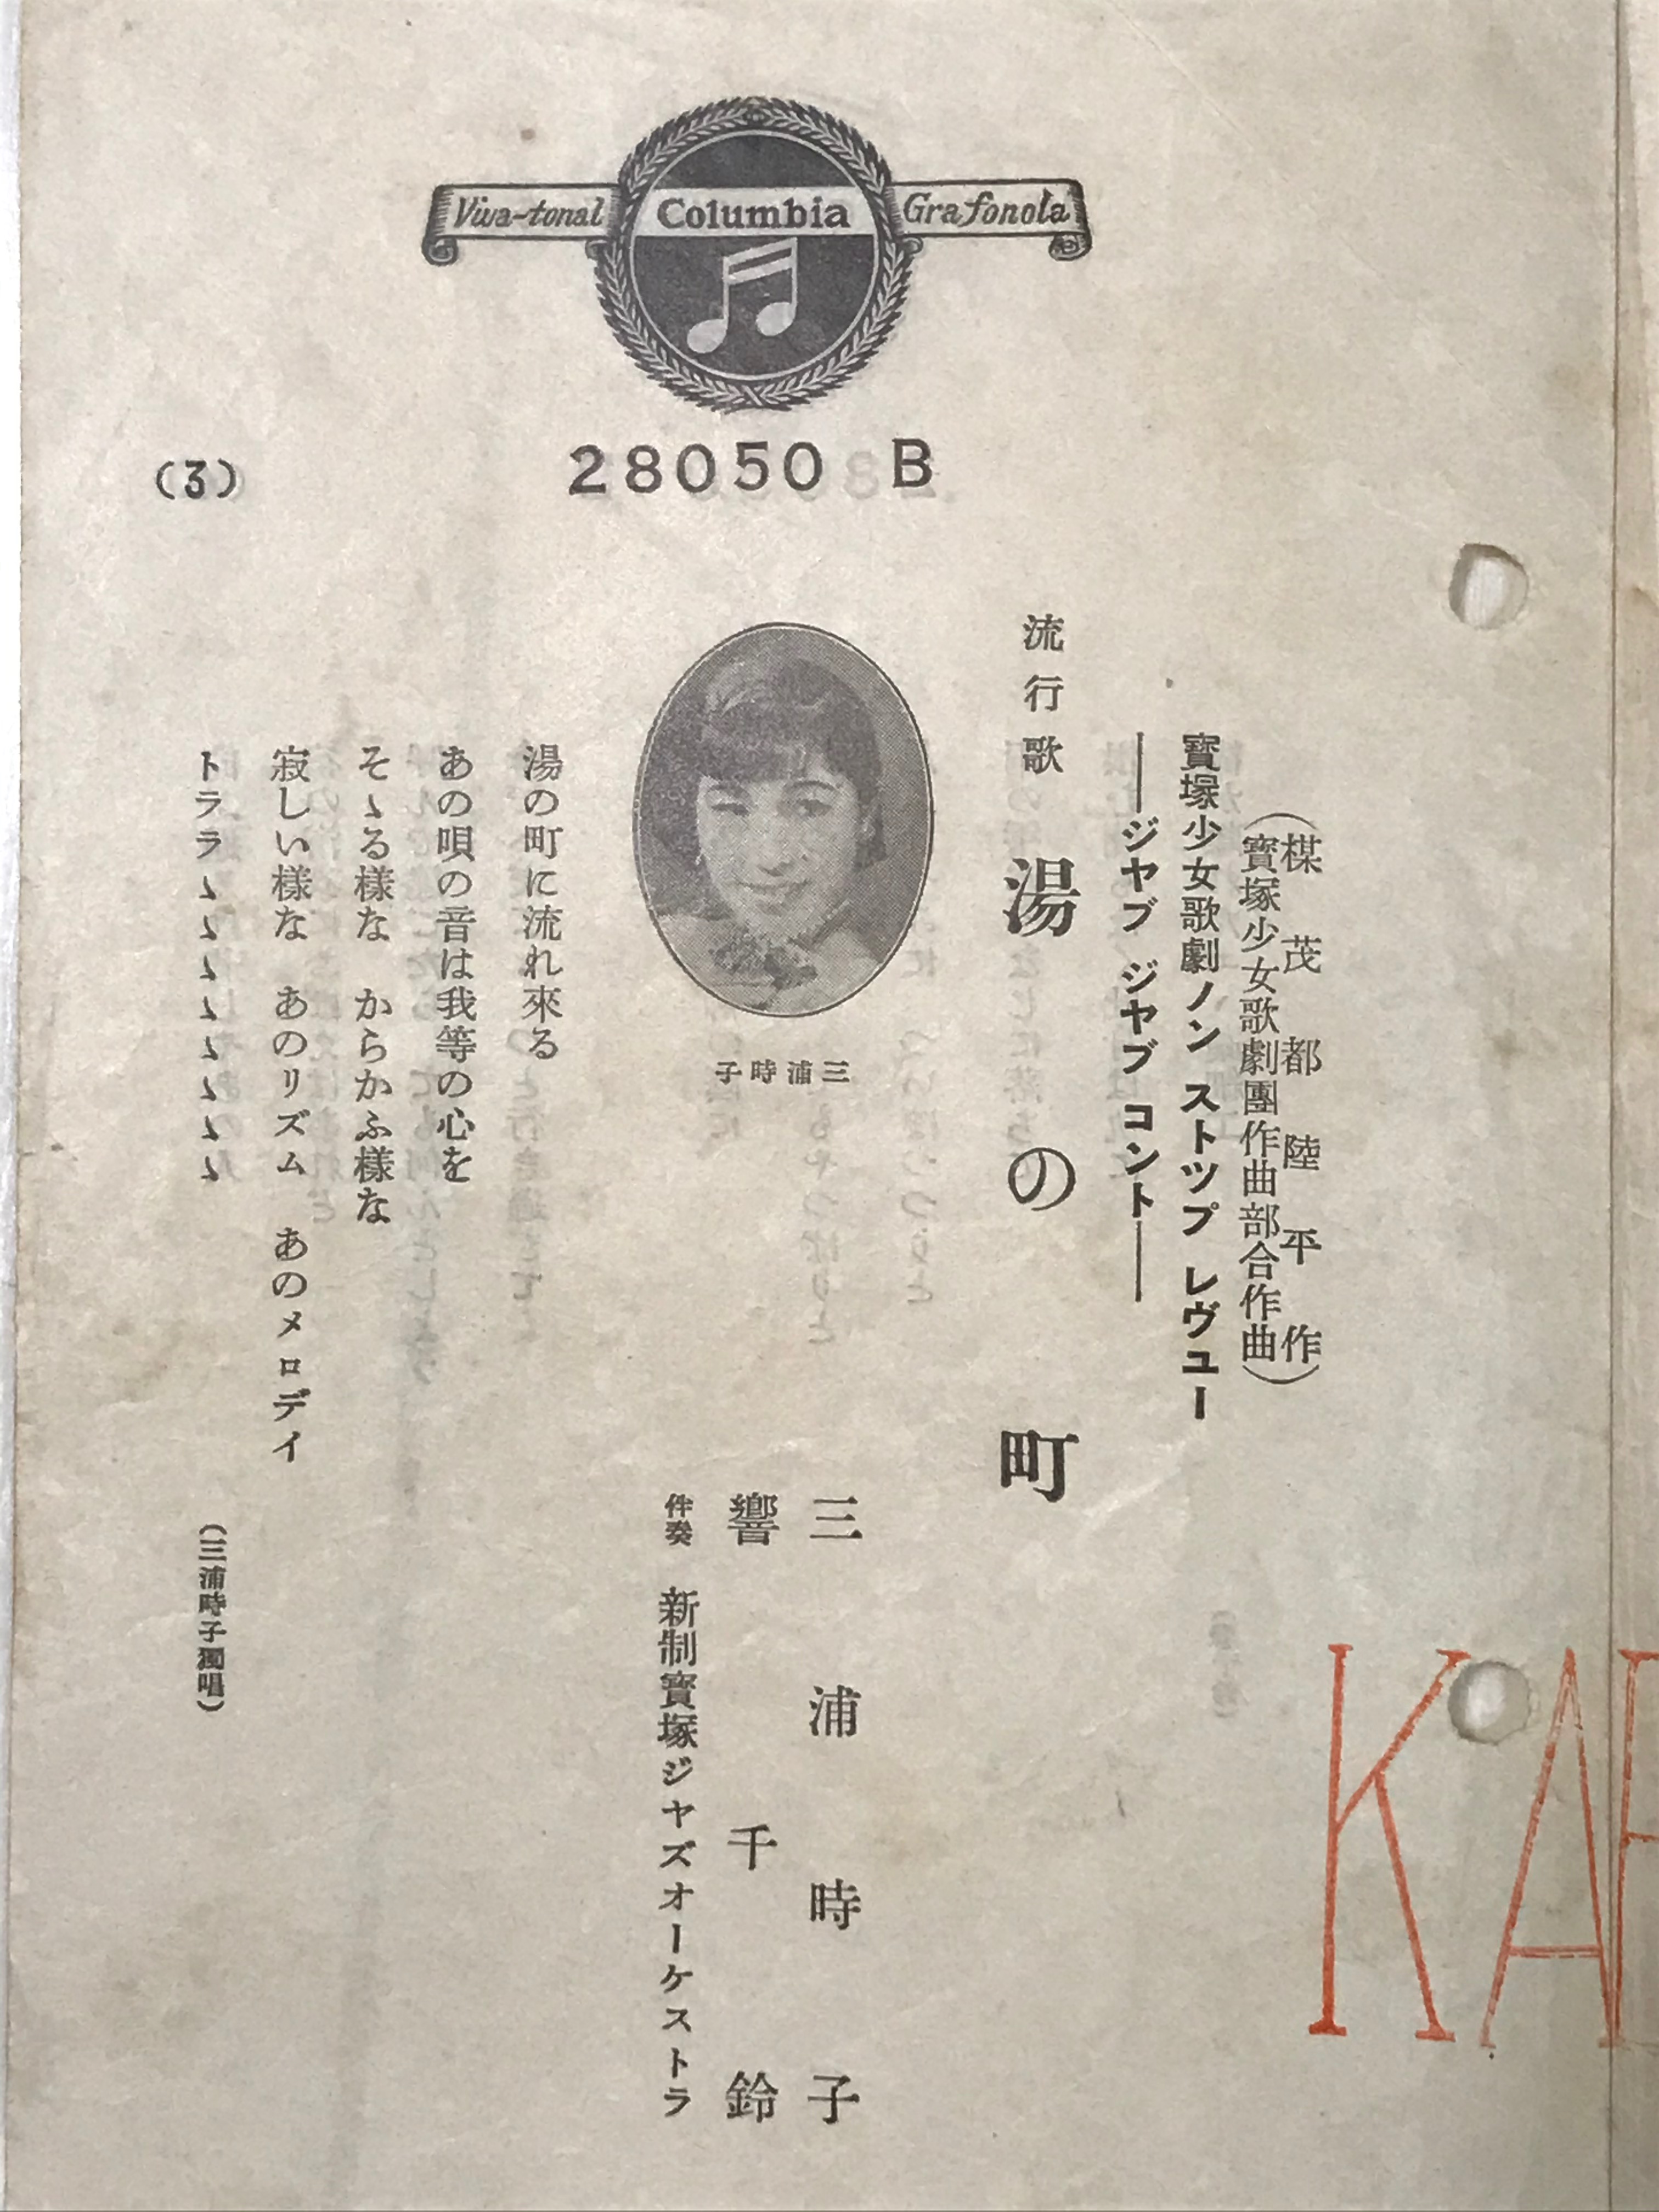 Viva-tonal Columbia Grafonola
28050 B
(楳茂都陸平作
寶塚少女歌劇團作曲部合作曲)
寶塚少女歌劇ノン ストツプ レヴユー
——ジヤブ ジヤブ コント——
流行歌 湯の町
三浦時子
響千鈴
伴奏 新制寶塚ジヤズオーケストラ
子時浦三
湯の町に流れ來る
あの唄の音は我等の心を
そゝる様な からかふ様な
寂しい様な あのリズム あのメロデイ
トララゝゝゝゝゝゝゝゝ (三浦時子獨唱)
(3)
KA